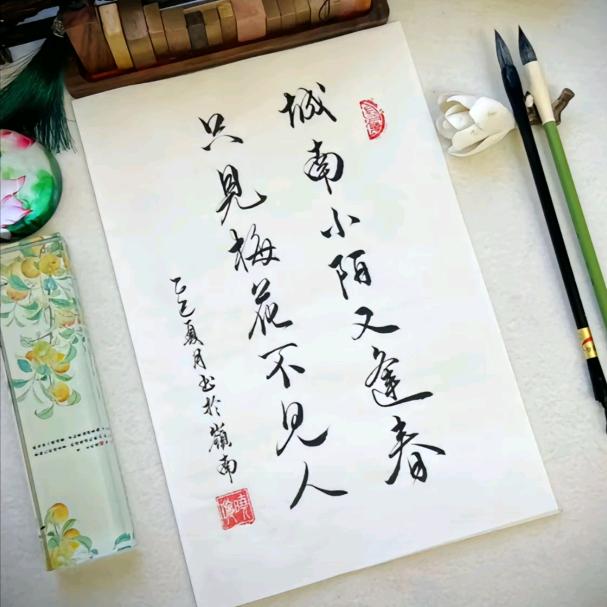 城南小陌又逢春
只見梅花不見人
乙巳夏月书於嶺南